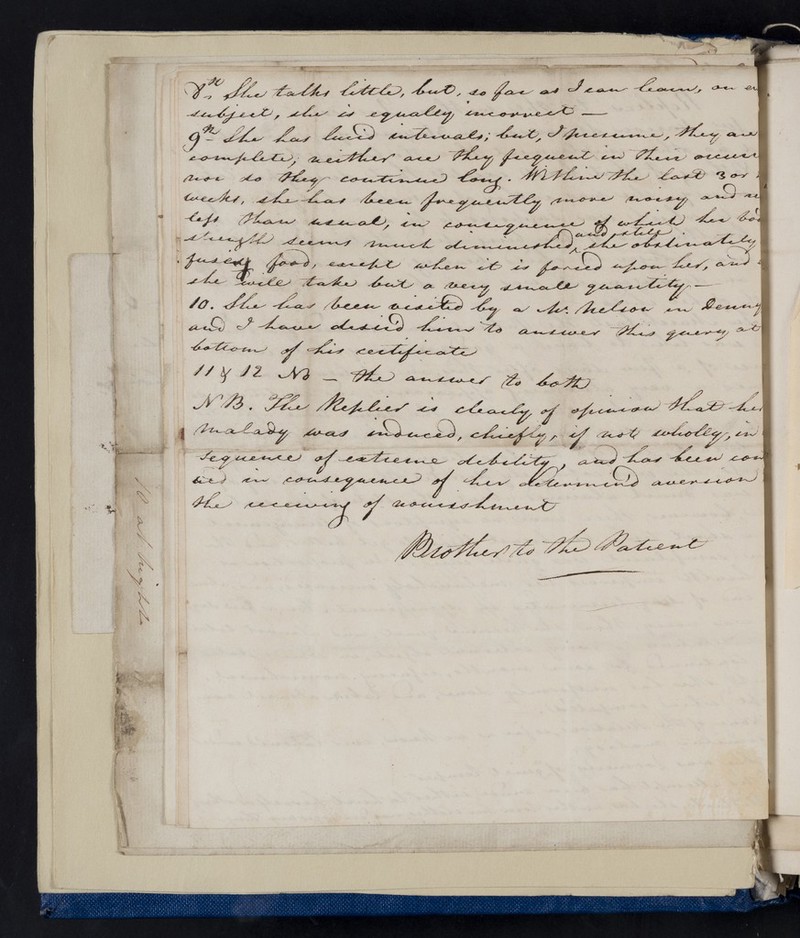 8th, She talks little, but, so far as I can learn, on
subject, she is equally incorrect —
9th She has lucid intervals; but, I presume, they are
complete, neither are they frequent in their
nor do they continue long. Within the last 3 or
weeks, she has been frequently more noisy and
less than usual, in consequence of which her
strength seems much diminished, and still she obstinately
fuses food, except when it is forced upon her, and
she will take but a very small quantity. —
10. She has been visited by a Mr. Nelson in Denny
and I have desir'd him to answer this query at
bottom of his certificate
11 & 12 No — the answer to both
NB. The Replier is clearly of opinion that her
malady was induced, chiefly, if not wholly, in
sequence of extreme debility, and has been con
ued in consequence of her determin'd aversion
the receiving of nourishment
Brother to the Patient
10 at night